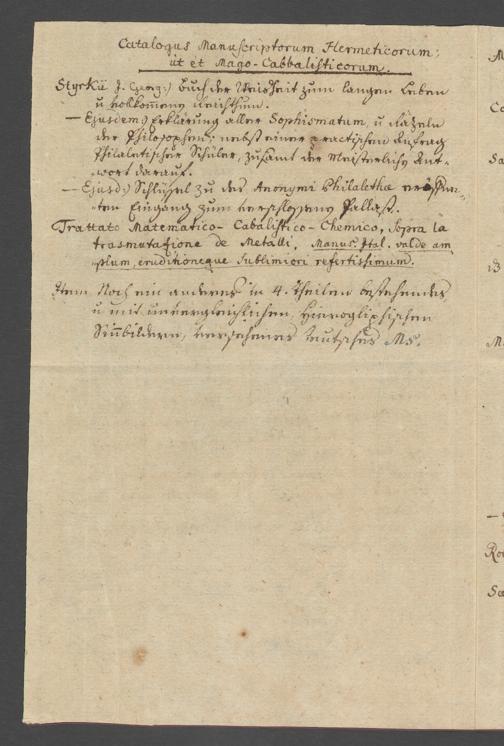 Catalogus Manuscriptorum Hermeticorum;
ut et Mago-Cabbalisticorum.
Styrkii J. Georg:) Buch der Weisheit zum langen Leben
u. vollkomene Reichthum.
— Ejusdem) Erklärung aller Sophismatum, u. Räzeln
der Philosophen; nebst einer practischen Anfrag
Philaletischer Schüler, zusamt der Meisterliche Ant-
wort darauf.
— Ejusd:) Schlüssel zu des Anonymi Philalethæ eröffne-
ten Eingang zum verschlossene Pallast.
Trattato Matematico-Cabalistico-Chemico, sopra la
trasmutasione de Metalli, Manus. Ital. valde am
plum, eruditioneque sublimiori refertissimum.
Item Noch ein anderes in 4. Theilen bestehendes
u. mit unvergleichlichen, Hieroglipfischen
Sinbildern, versehenes teutsches Ms.